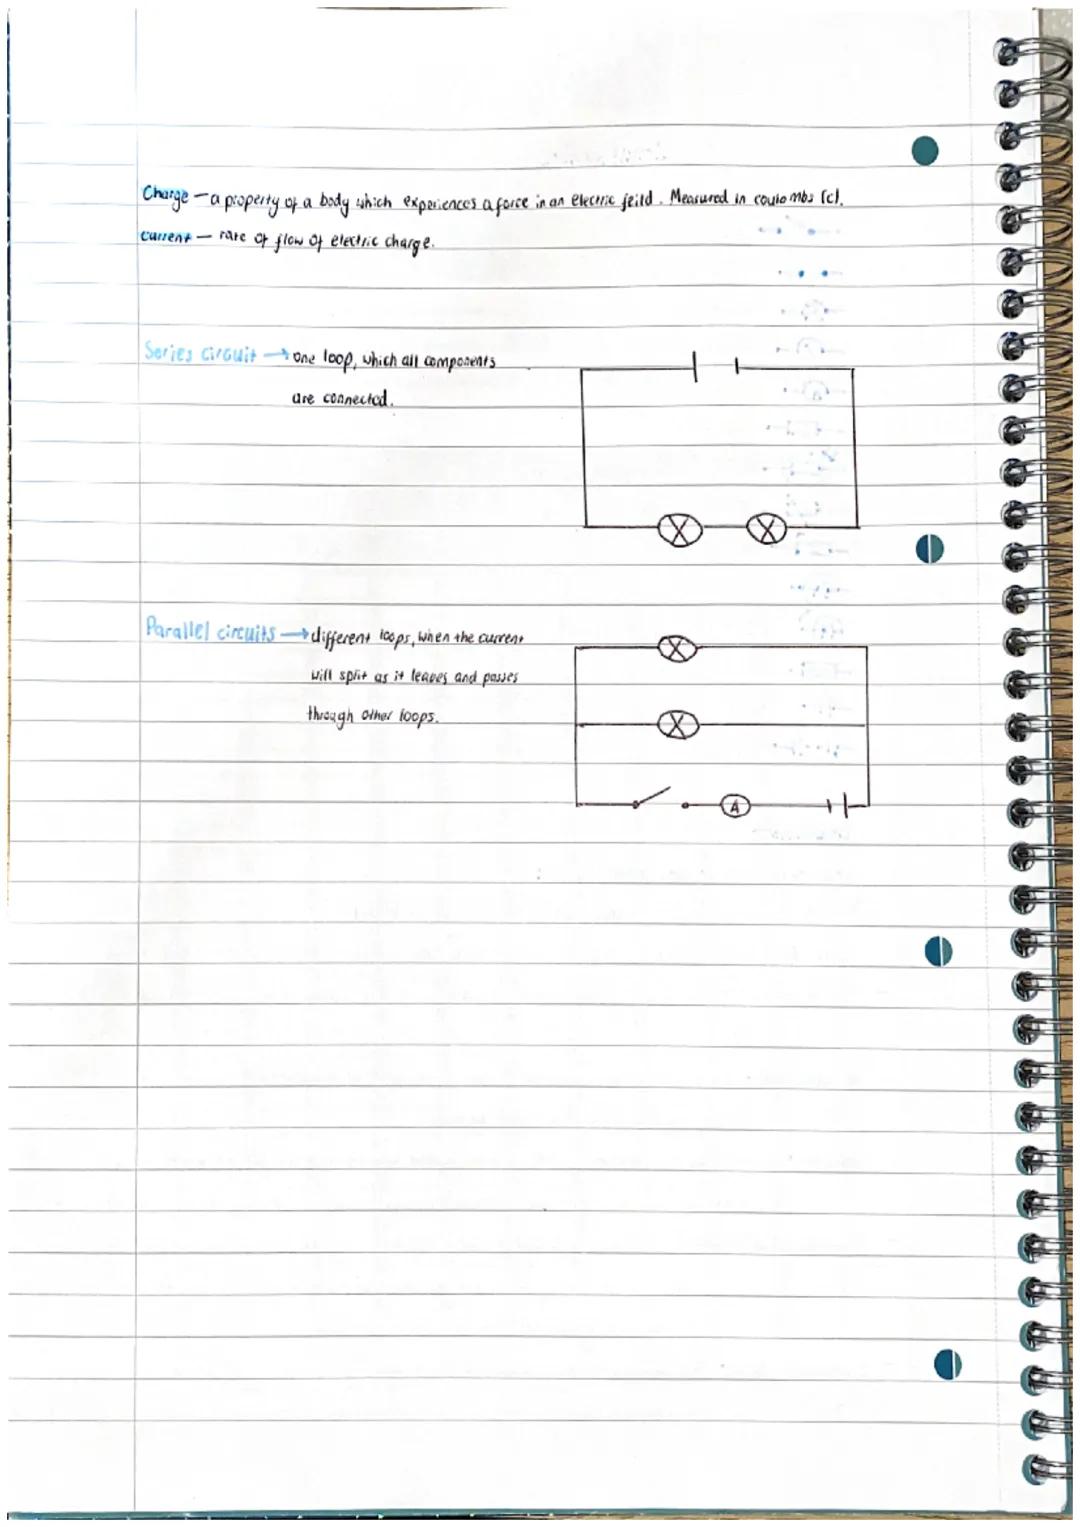 Charge – a property of a body which experiences a force in an electric feild. Measured in coulombs (c).
Current – rate of flow of electric charge.
Series circuit → one loop, which all components
are connected.
Parallel circuits → different loops, when the current
will split as it leaves and passes
through other loops.
A